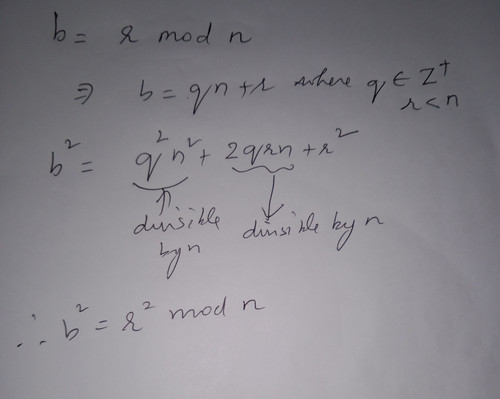 b = r mod n
⇒ b = qn + r where q ∈ Z⁺
r < n
b² = q²n² + 2qrn + r²
divisible by n divisible by n
∴ b² = r² mod n